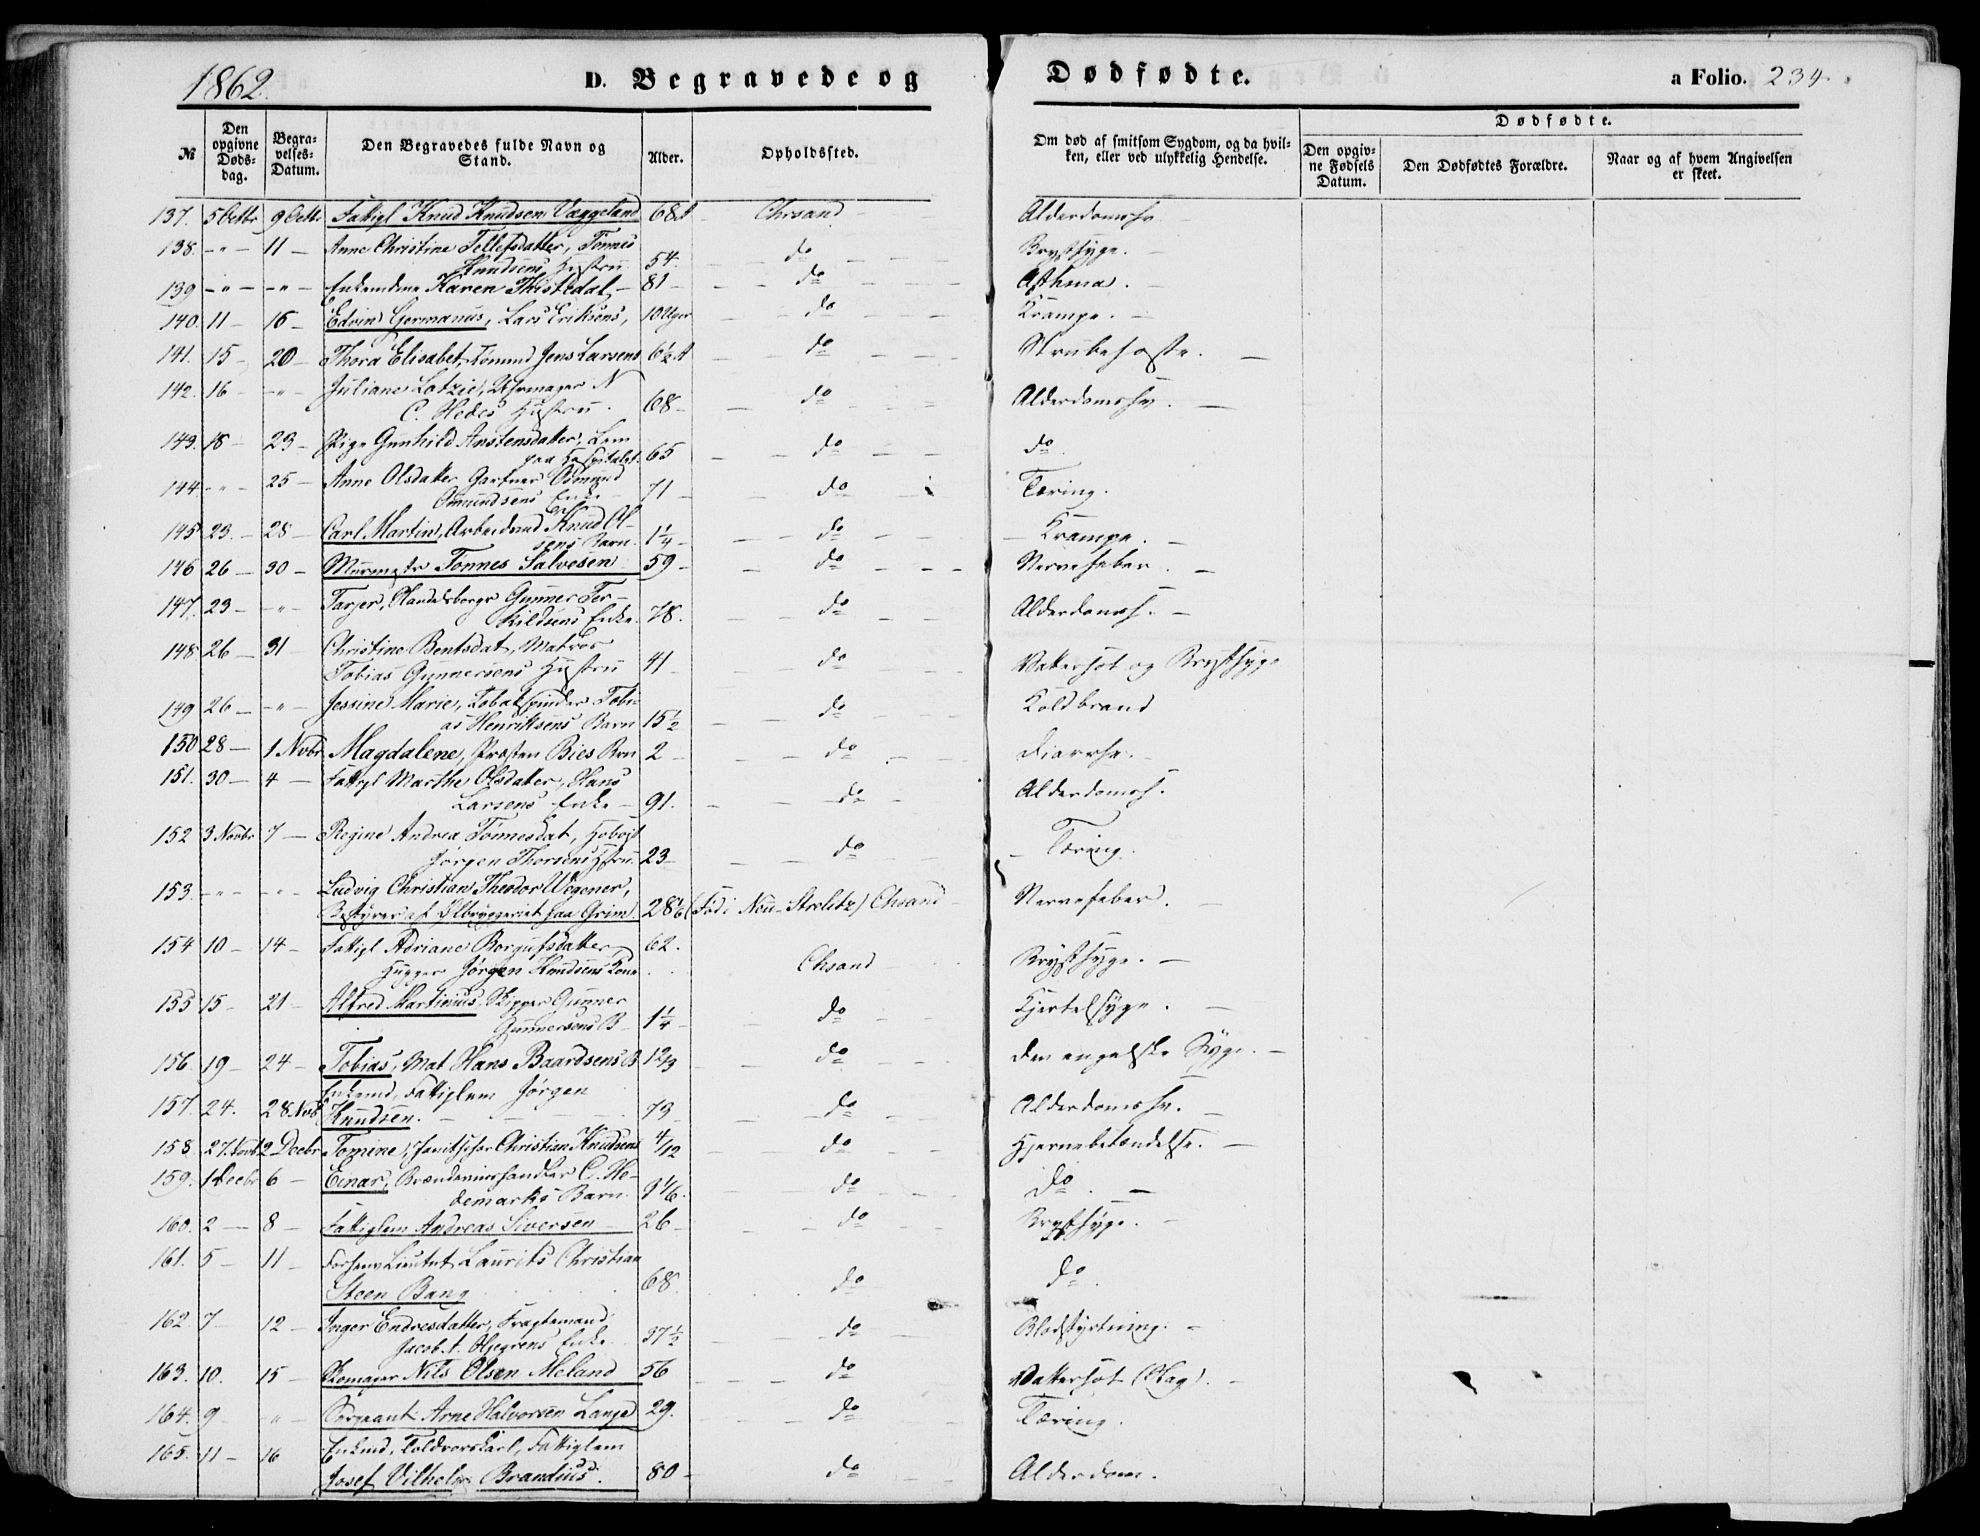 1862.
D. Begravede og Dødfødte.
a Folio. 234.
No
Den opgivne Døds-dag.
Begra-velses-Datum.
Den Begravedes fulde Navn og Stand.
Alder.
Opholdssted.
Om død af smitsom Sygdom, og da hvil-ken, eller ved ulykkelig Hendelse.
Dødfødte.
Den opgiv-ne Fødsels Datum.
Den Dødfødtes Forældre.
Naar og af hvem Angivelsen er skeet.
137. 5 Octbr 9 Octbr Fattigl Knud Knudsen Væggeland 68 A – Chrsand – Alderdomssv
138. -"- 11 – Anne Christine Tellefsdatter, Tønnes
Knudsens Hustru. 54. – do – Brystsyge. –
139 -"- -"- Enkemdme Karen Thistedal – 81 – do – Asthma. –
140. 11 – 16 – Edvin Germanus, Lars Eriksens, 10 Uger do – Krampe. –
141. 15 – 20 – Thora Elisabet, Tømmd Jens Larsens 6½ A – do Strubehoste. –
142. 16 – -"- Juliane Lotzie, Uhrmager N
C. Hedes Hustru. 68 – do – Alderdomssv. –
143. 18 – 23 – Pige Gunhild Anstensdatter, Lem
paa Hospitalet. 65 do – do.
144 -"- 25 – Anne Olsdatter Gartner Osmund
Osmundsens Enke – 71 – do – Tæring.
145 23. – 28 – Carl Martin, Arbeidsmd Knud Ol-
sens Barn. 1¼ – do – Krampe. –
146 26 – 30 – Murmestr Tønnes Salvesen 59 – do – Nervefeber. –
147. 23 – -"- Tarjer, Handelsborgr Gunner Ter-
kildsens Enke. 78. do Alderdomss. –
148 26 – 31 Christine Bentsdat, Matros
Tobias Gunnersens Hustru 41 – do – Vattersot og Brystsyge
149 26 – -"- Jessine Marie, Tobakspinder Tobi-
as Henriksens Barn 15½ – do – Koldbrand
150 28 – 1 Novbr Magdalene, Præsten Bies Brn 2 – do – Diarrhe. –
151. 30 – 4 – Fattigl Marthe Olsdatter, Hans
Larsens Enke – 91. – do – Alderdomss.
152 3 Novbr 7 – Regine Andrea Tønnesdat,
Jørgen Thorsens Hstru. 23 – do – Tæring.
153. -"- -"- Ludvig Christian Theodor Wegener,
Bestyrer af Ølbryggeriet paa Grim. 28⅙ (Fød i Neu-Strelitz) Chsand – Nervefeber. –
154 10 – 14 – Fattigl Adriane Borgufsdatter 62.
Jørgen Knudsens Kone Chsand Brystsyge. –
155 15 – 21 – Alfred Martinius, Skipper Gunner
Gunnersens B – 1¼ – do – Kjertelsyge. –
156. 19 – 24 – Tobias, Mat Hans Baardsens B 1⅔ do – Den engelske Syge. –
157. 24. 28 Novb Enkemd, Fattiglem Jørgen
Knudsen. 73 – do Alderdomssv. –
158. 27 Novb 2 Decbr Tomine, Christian Knudsens 4/12 do – Hjernebetændelse. –
159. 1 Decbr 6 – Einar, Brændeviinshandler C. He-
demarks Barn. 9⅙. – do – do. –
160. 2 – 8 – Fattiglem Andreas Siversen – 26 – do – Brystsyge. –
161. 5 – 11 – Forhenv Lieutnt Laurits Christian
Steen Bang 68. do do.
162 7 – 12 – Inger Endresdatter, Fragtemand
Jacob. t. Hjegrens Enke. 37½ – do – Blodstyrtning. –
163. 10. 15 – Skomager Nils Olsen Meland 56 – do Vattersot (Slag). –
164. 9 – -"- Sergeant Arne Halvorsen Lange 29. do – Tæring.
165. 11 – 16 Enkmd, Toldrorskarl, Fattiglem
Josef Vilhelm Brandius. 80 – do – Alderdom.